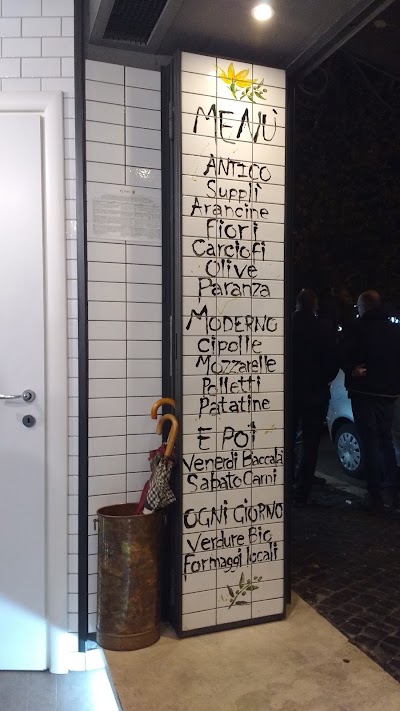 MENÙ
ANTICO
Supplì
Arancine
Fiori
Carciofi
Olive
Paranza
MODERNO
Cipolle
Mozzarelle
Polletti
Patatine
E POI
Venerdì Baccalà
Sabato Carni
OGNI GIORNO
Verdure Bio
Formaggi locali